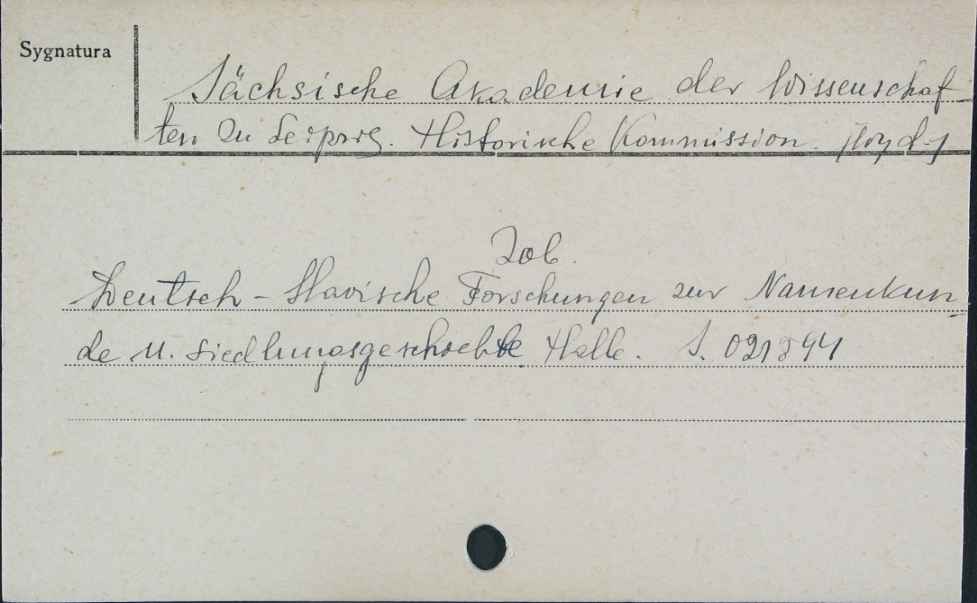 Sygnatura
Sächsische Akademie der Wissenschaf-
ten zu Leipzig. Historische Kommission. [wyd.]
Zob.
Deutsch-Slavische Forschungen zur Namenkun-
de u. Siedlungsgeschichte Halle. S. 021344